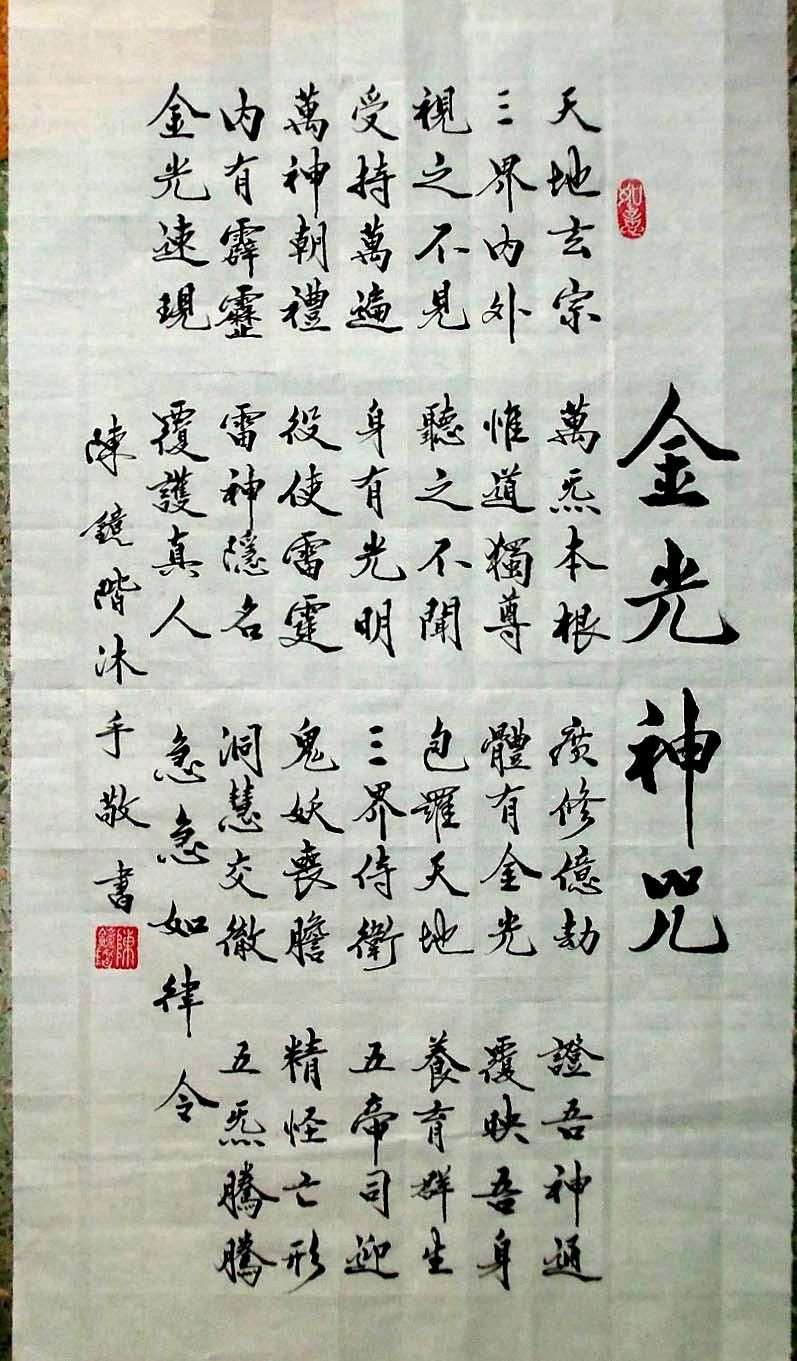 如意
金光神咒
天地玄宗 萬炁本根 廣修億劫 證吾神通
三界內外 惟道獨尊 體有金光 覆映吾身
視之不見 聽之不聞 包羅天地 養育群生
受持萬遍 身有光明 三界侍衛 五帝司迎
萬神朝禮 役使雷霆 鬼妖喪膽 精怪亡形
內有霹靂 雷神隱名 洞慧交徹 五炁騰騰
金光速現 覆護真人 急急如律令
陳鏡階沐手敬書